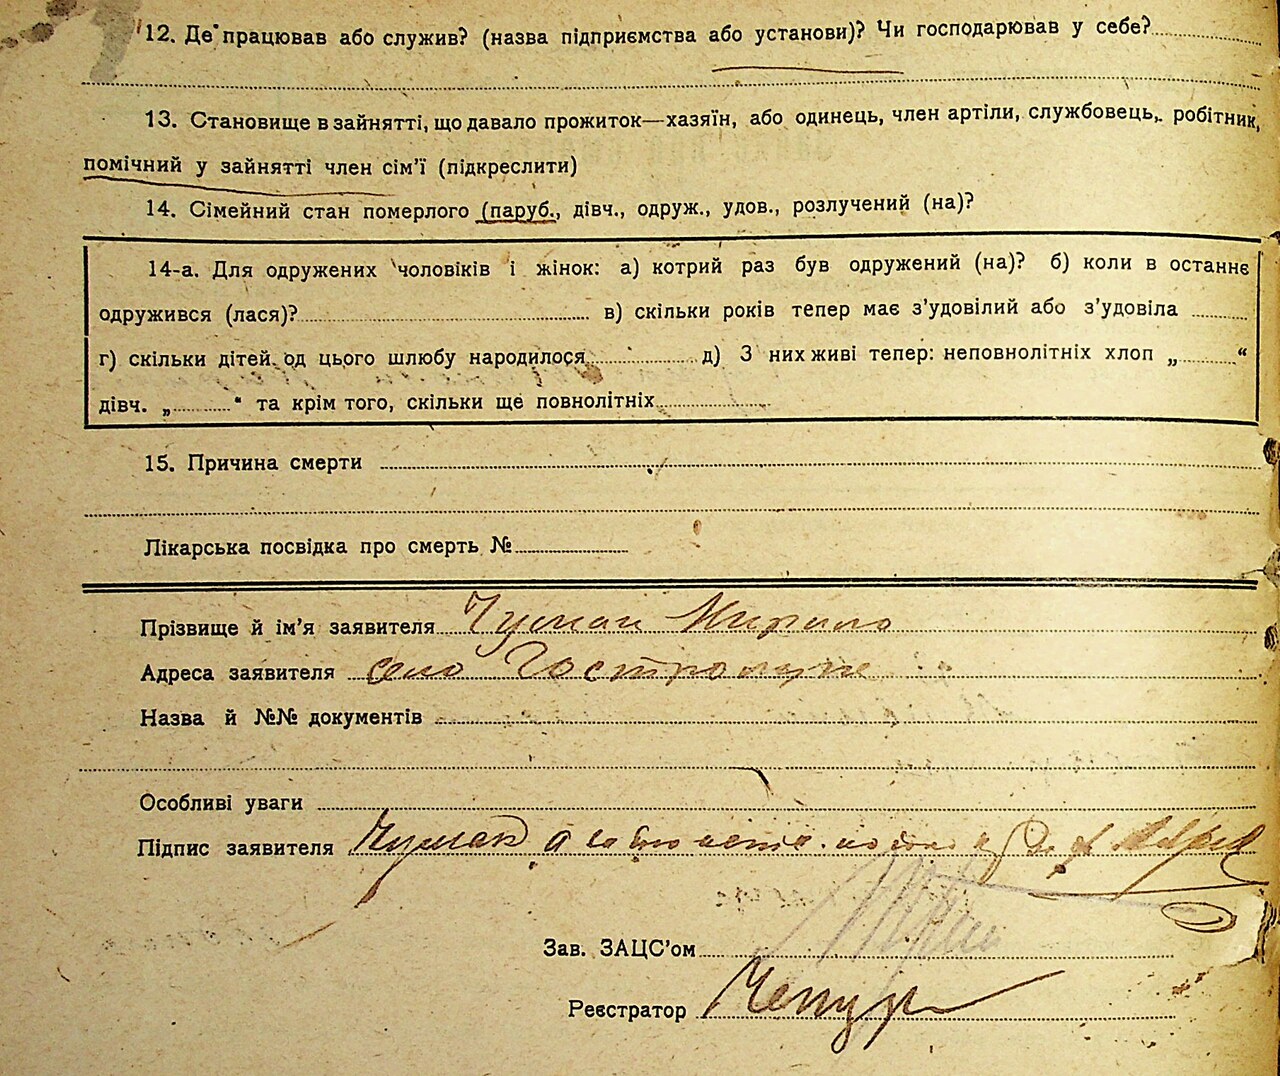 12. Де працював або служив? (назва підприємства або установи)? Чи господарював у себе?
13. Становище в зайнятті, що давало прожиток—хазяїн, або одинець, член артіли, службовець, робітник,
помічний у зайнятті член сім'ї (підкреслити)
14. Сімейний стан померлого (паруб., дівч., одруж., удов., розлучений (на)?
14-а. Для одружених чоловіків і жінок: а) котрий раз був одружений (на)? б) коли в останнє
одружився (лася)? в) скільки років тепер має з'удовілий або з'удовіла
г) скільки дітей од цього шлюбу народилося д) З них живі тепер: неповнолітніх хлоп „ “
дівч. „ “ та крім того, скільки ще повнолітніх
15. Причина смерти
Лікарська посвідка про смерть №
Прізвище й ім'я заявителя Чумак Кирило
Адреса заявителя село Гостролуче
Назва й №№ документів
Особливі уваги
Підпис заявителя Чумак а
Зав. ЗАЦС'ом
Реєстратор Чепур